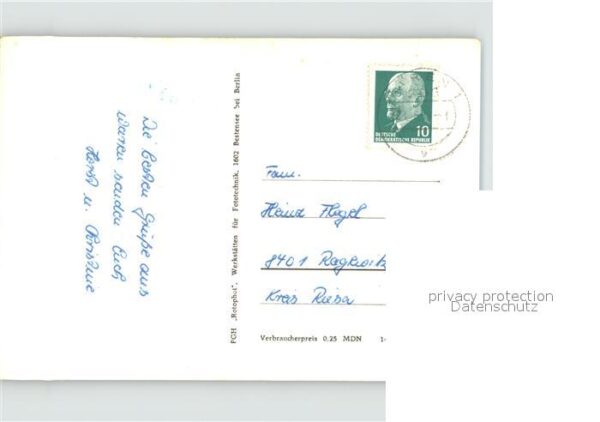 Die besten Grüße aus
Waren senden Euch
Horst u. Christine
PGH „Rotophot", Werkstätten für Fototechnik, 1602 Bestensee bei Berlin
10
DEUTSCHE
DEMOKRATISCHE REPUBLIK
Fam.
Heinz
8401
Kreis Riesa
Verbraucherpreis 0,25 MDN
privacy protection
Datenschutz